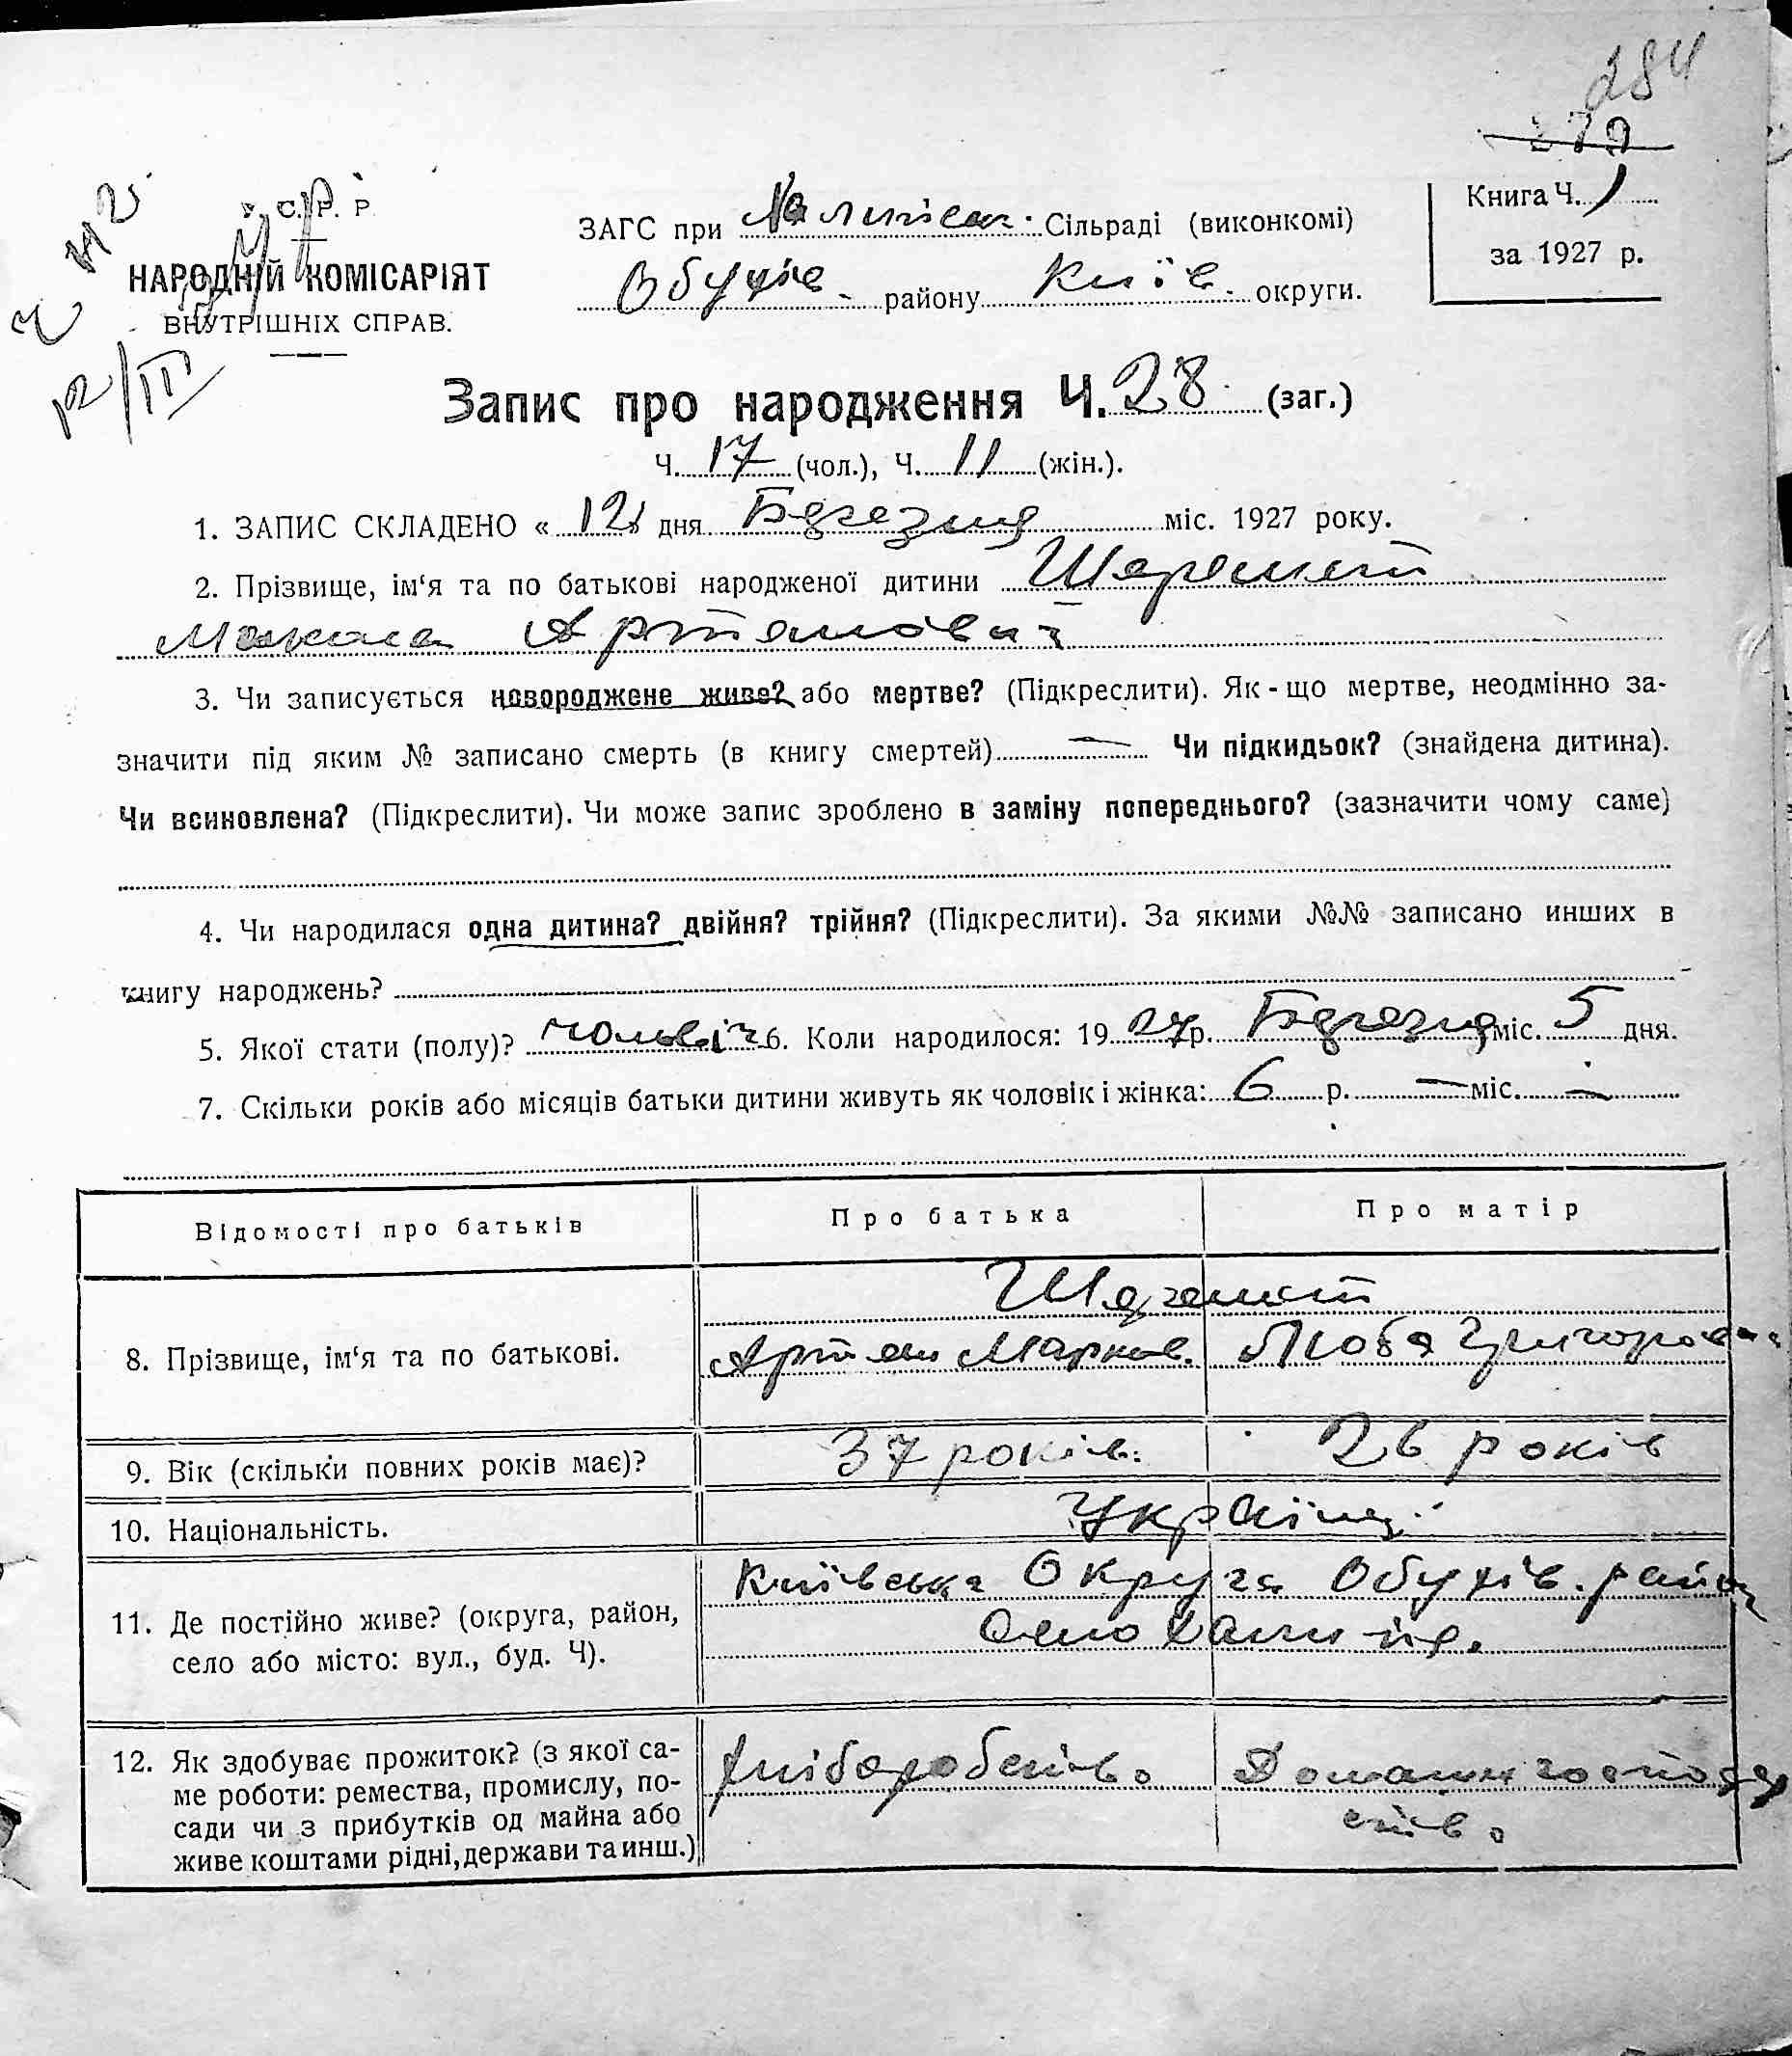 284
У. С. Р. Р.
НАРОДНІЙ КОМІСАРІЯТ
ВНУТРІШНІХ СПРАВ.
12/III
ЗАГС при Сільраді (виконкомі)
Обухів. району Київ. округи.
Книга Ч. 1
за 1927 р.
Запис про народження Ч. 28 (заг.)
Ч. 17 (чол.), Ч. 11 (жін.).
1. ЗАПИС СКЛАДЕНО « 12 дня Березня міс. 1927 року.
2. Прізвище, ім‘я та по батькові народженої дитини Шеремет
Микола Артемович
3. Чи записується новороджене живе? або мертве? (Підкреслити). Як-що мертве, неодмінно за-
значити під яким № записано смерть (в книгу смертей) — Чи підкидьок? (знайдена дитина).
Чи всиновлена? (Підкреслити). Чи може запис зроблено в заміну попереднього? (зазначити чому саме)
4. Чи народилася одна дитина? двійня? трійня? (Підкреслити). За якими №№ записано инших в
книгу народжень?
5. Якої стати (полу)? 6. Коли народилося: 1927 р. Березня міс. 5 дня.
7. Скільки років або місяців батьки дитини живуть як чоловік і жінка: 6 р. — міс. —
Відомості про батьків
Про батька
Про матір
8. Прізвище, ім‘я та по батькові.
Шеремет
Артем Марков.
Люба Григоровна
9. Вік (скільки повних років має)?
37 років.
26 років
10. Національність.
Українці
11. Де постійно живе? (округа, район,
село або місто: вул., буд. Ч).
Київська Округа Обухів. район
Село
12. Як здобуває прожиток? (з якої са-
ме роботи: ремества, промислу, по-
сади чи з прибутків од майна або
живе коштами рідні, держави та инш.)
Хліборобств.
Домашн господар
ств.